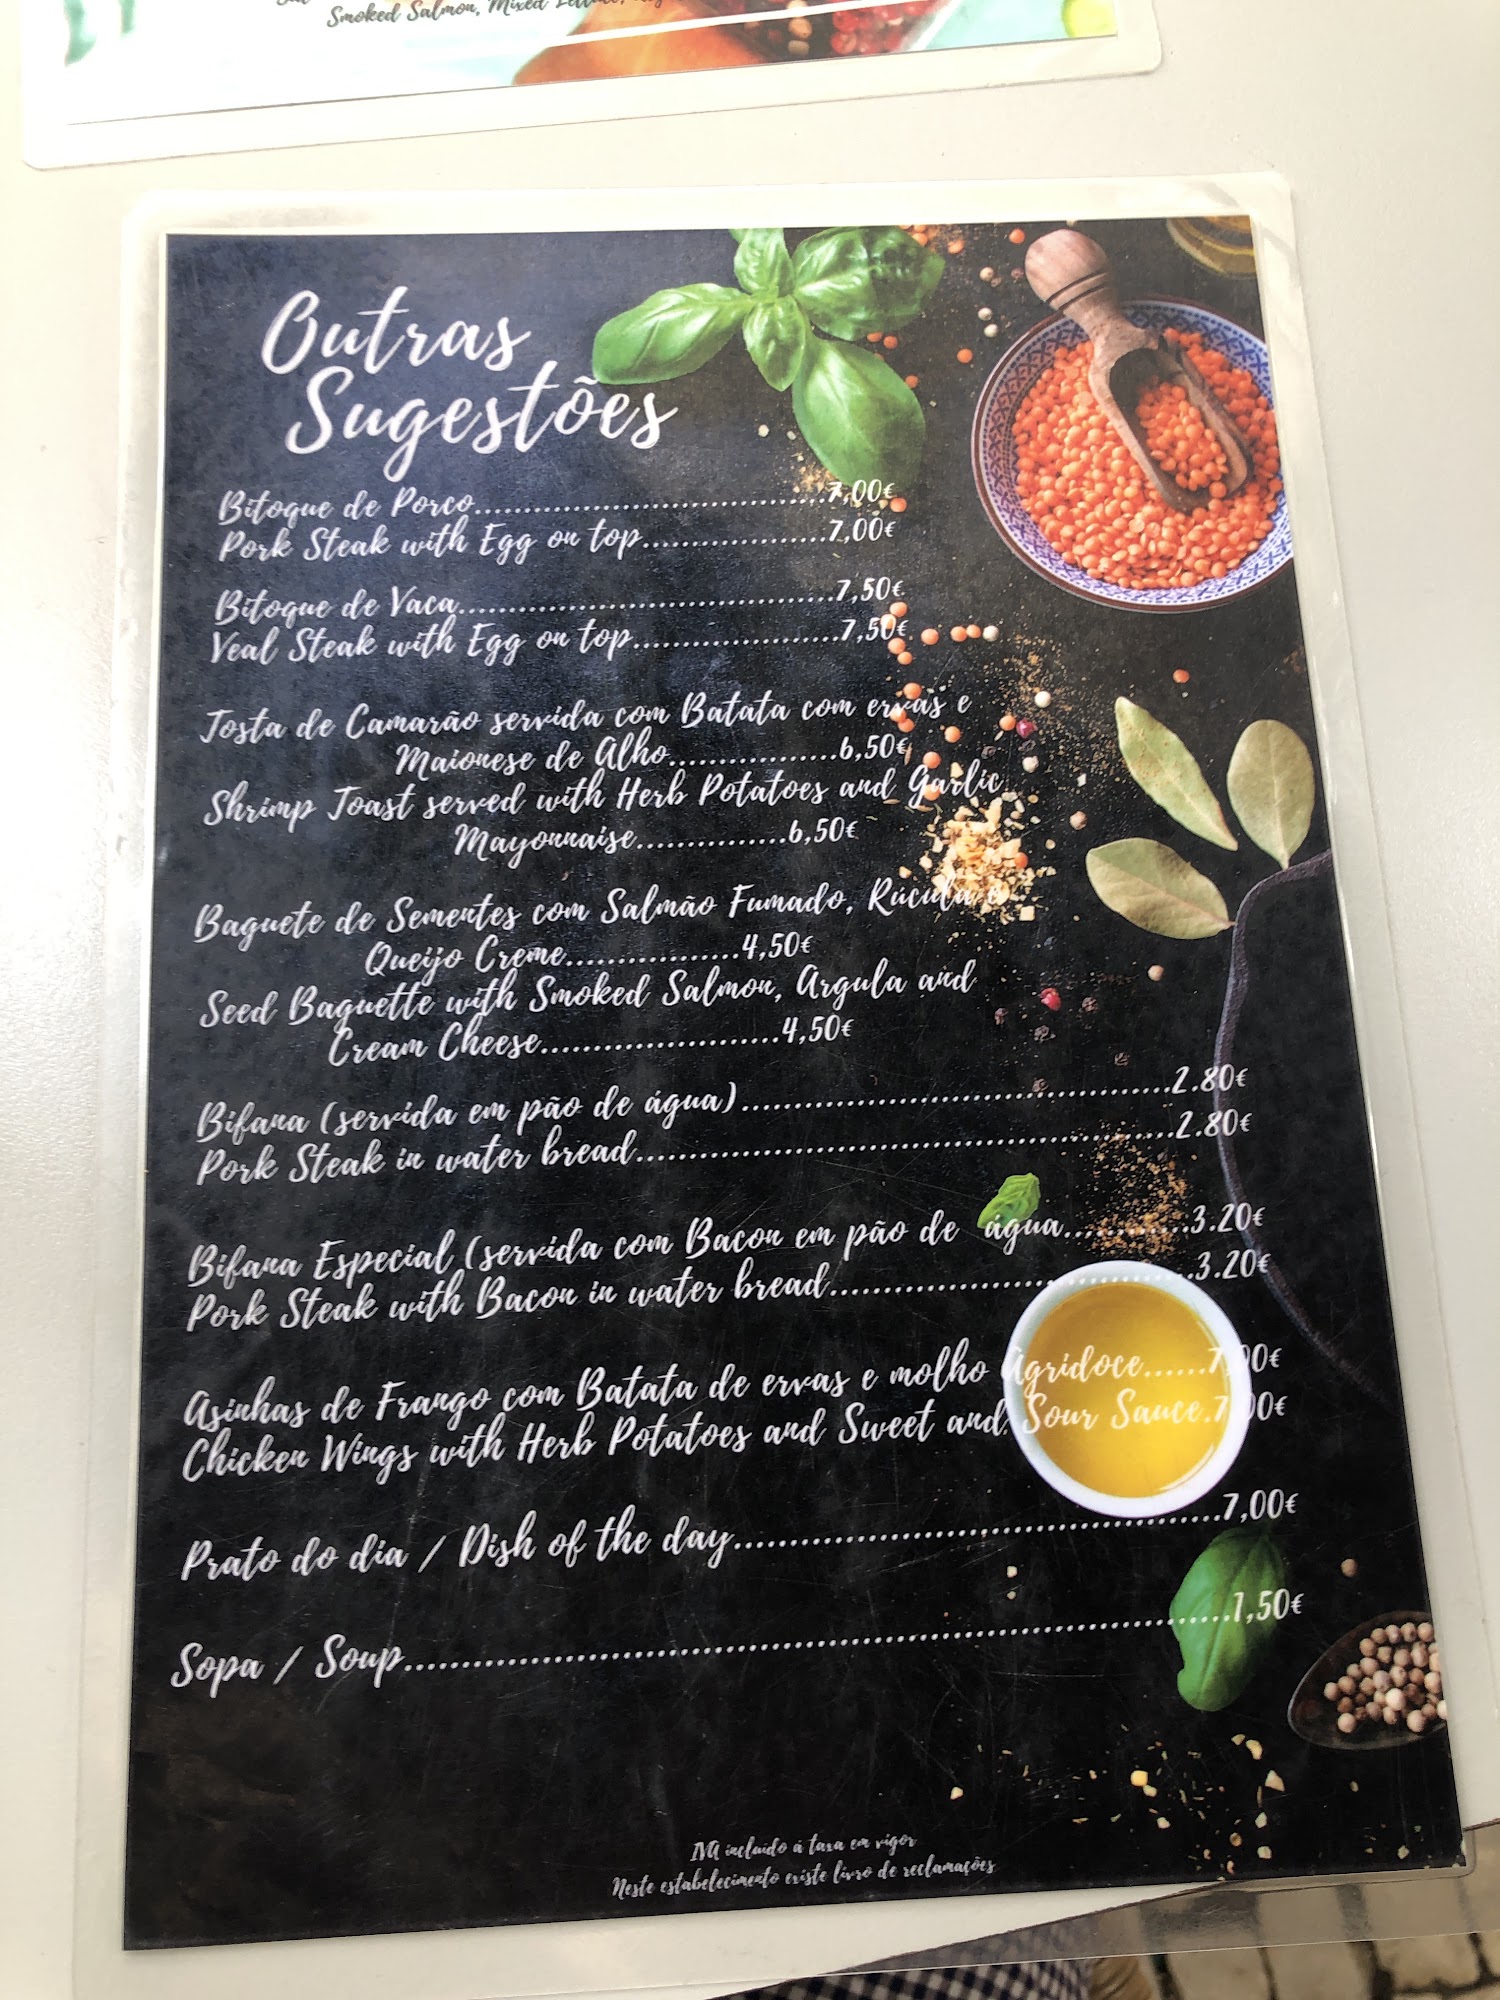 Smoked Salmon, Mixed
Outras
Sugestões
Bitoque de Porco....................................7,00€
Pork Steak with Egg on top...................7,00€
Bitoque de Vaca......................................7,50€
Veal Steak with Egg on top.....................7,50€
Tosta de Camarão servida com Batata com ervas e
Maionese de Alho.................6,50€
Shrimp Toast served with Herb Potatoes and Garlic
Mayonnaise...............6,50€
Baguete de Sementes com Salmão Fumado, Rúcula e
Queijo Creme.................4,50€
Seed Baguette with Smoked Salmon, Argula and
Cream Cheese........................4,50€
Bifana (servida em pão de água)...........................................2.80€
Pork Steak in water bread......................................................2.80€
Bifana Especial (servida com Bacon em pão de água............3.20€
Pork Steak with Bacon in water bread....................................3.20€
Asinhas de Frango com Batata de ervas e molho Agridoce......7,00€
Chicken Wings with Herb Potatoes and Sweet and Sour Sauce.7,00€
Prato do dia / Dish of the day.................................................7,00€
Sopa / Soup.....................................................................................1,50€
IVA incluido á taxa em vigor
Neste estabelecimento existe livro de reclamações